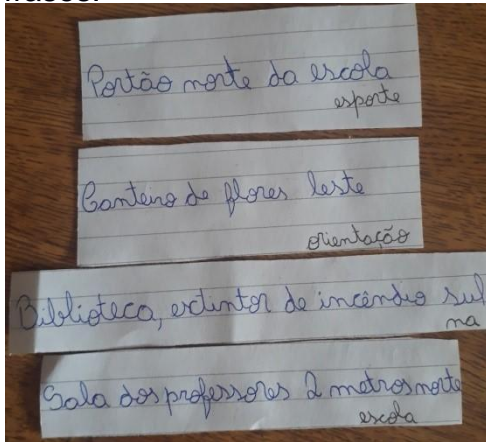 Portão norte da escola
esporte
Canteiro de flores leste
orientação
Biblioteca, extintor de incêndio sul
na
Sala dos professores 2 metros norte
escola